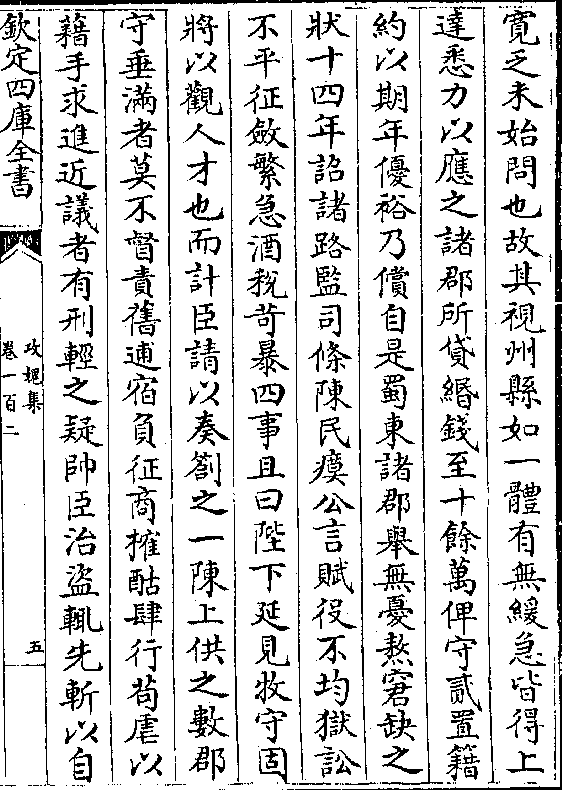 寛乏未始問也故其視州縣如一體有無緩急皆得上
達悉力以應之諸郡所貸緡錢至十餘萬俾守貳置籍
約以期年優裕乃償自是蜀東諸郡舉無憂熬窘缺之
狀十四年詔諸路監司條陳民瘼公言賦役不均獄訟
不平征斂繁急酒稅苛暴四事且曰陛下延見牧守固
將以觀人才也而計臣請以奏劄之一陳上供之數郡
守垂滿者莫不督責舊逋宿負征商搉酤肆行苟虐以
藉手求進近議者有刑輕之疑帥臣治盜輒先斬以自
欽定四庫全書
攻媿集
卷一百二
五